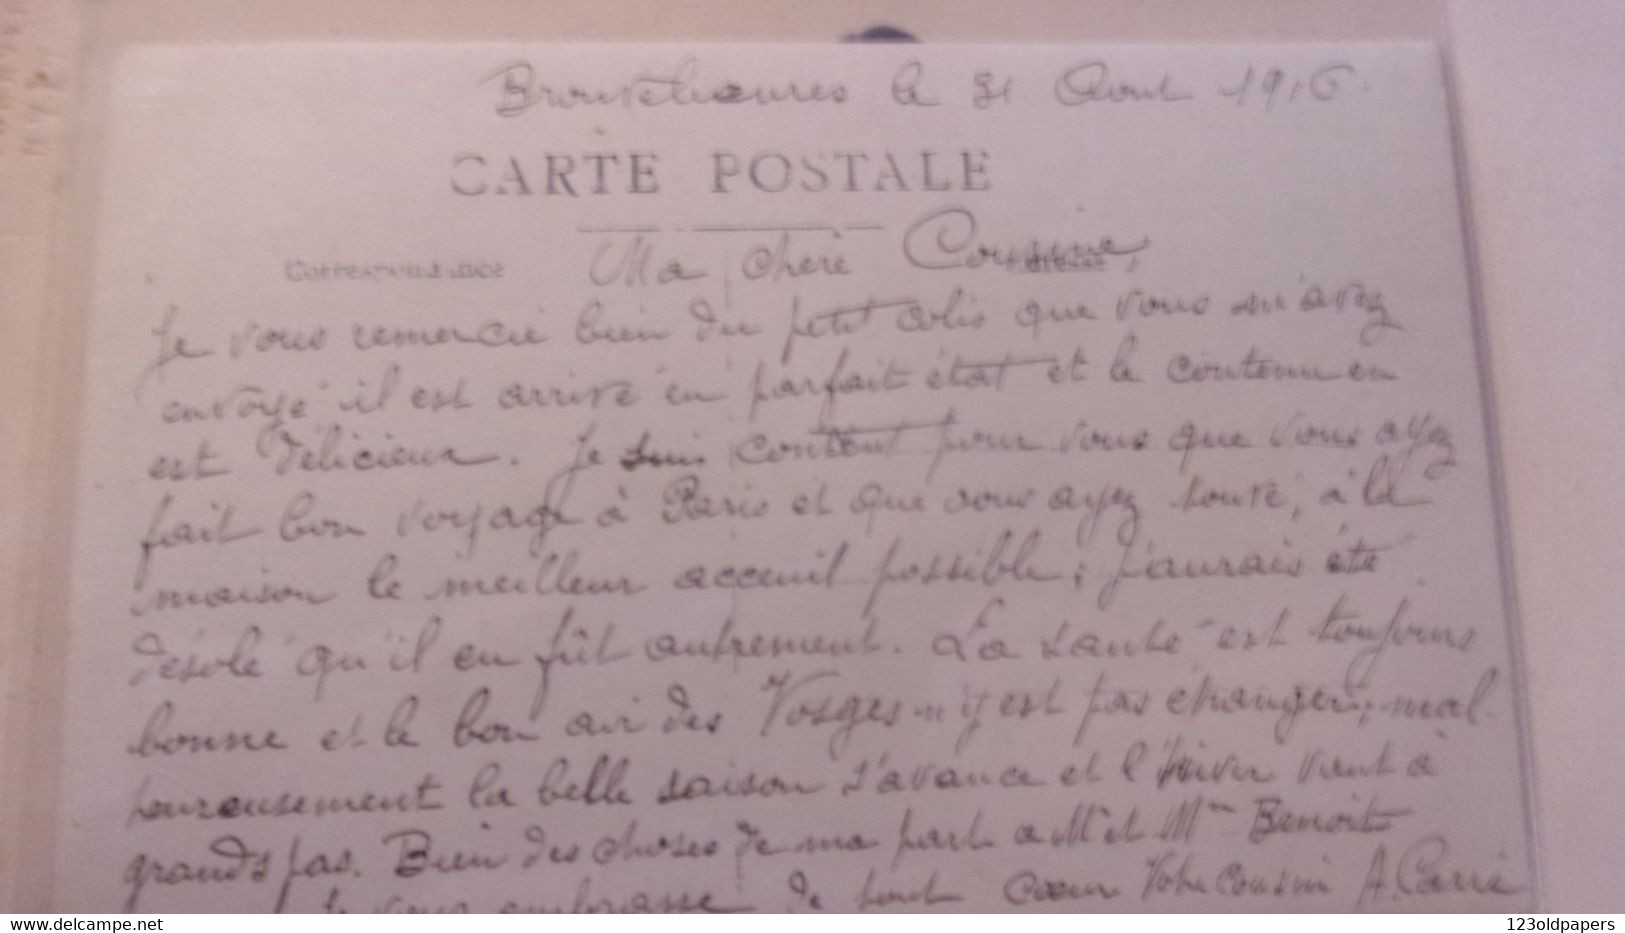 Brouvelieures le 31 Aout 1916
CARTE POSTALE
Correspondance Ma chère Cousine,
Je vous remercie bien du petit colis que vous m'avez
envoyé il est arrivé en parfait état et le contenu en
est délicieux. Je suis content pour vous que vous ayez
fait bon voyage à Paris et que vous ayez trouvé, à la
maison le meilleur acceuil possible; J'aurais été
désolé qu'il en fût autrement. La santé est toujours
bonne et le bon air des Vosges n'y est pas étranger; mal-
heureusement la belle saison s'avance et l'hiver vient à
grands pas. Bien des choses de ma part a Mr et Mme Benoit
Je vous embrasse de tout cœur Votre Cousin A. Carré
delcampe.net
123oldpapers